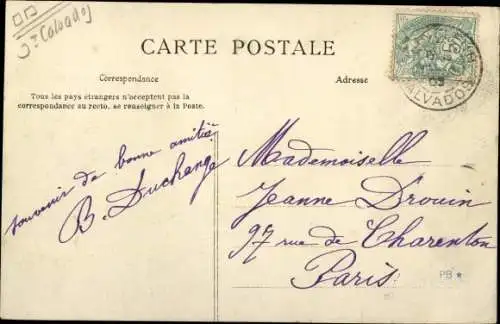 Dt Calvados
CARTE POSTALE
Correspondance
Adresse
Tous les pays étrangers n'acceptent pas la
correspondance au recto, se renseigner à la Poste.
CALVADOS
souvenir de bonne amitié
B. Duchange
Mademoiselle
Jeanne Drouin
97 rue de Charenton
Paris
PB *